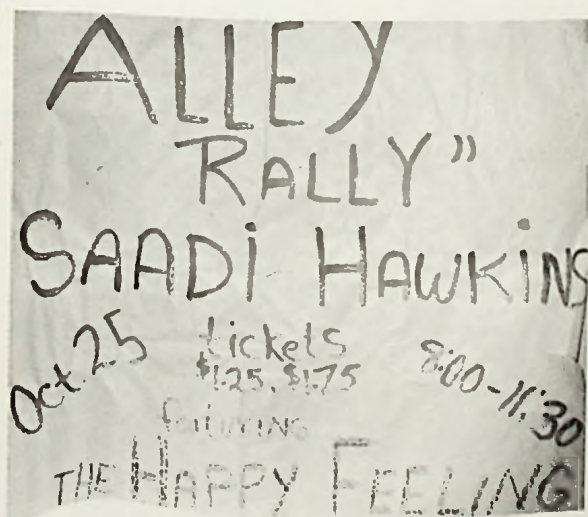 ALLEY
RALLY"
SAADI HAWKINS
Oct. 25 tickets 8:00-11:30
$1.25, $1.75
featuring
THE HAPPY FEELING